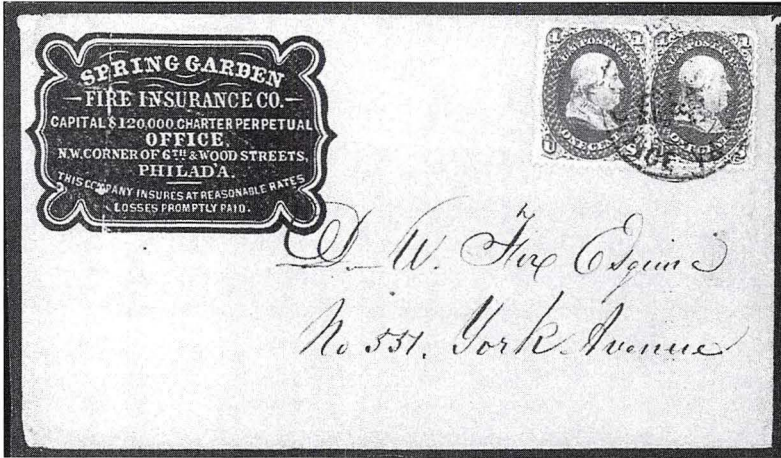 SPRING GARDEN
FIRE INSURANCE CO.
CAPITAL $120,000. CHARTER PERPETUAL
OFFICE.
N.W. CORNER OF 6TH & WOOD STREETS,
PHILADA.
THIS COMPANY INSURES AT REASONABLE RATES
LOSSES PROMPTLY PAID.
U.S. POSTAGE
ONE CENT
U.S. POSTAGE
ONE CENT
D. W. Fox Esquire
No 551. York Avenue